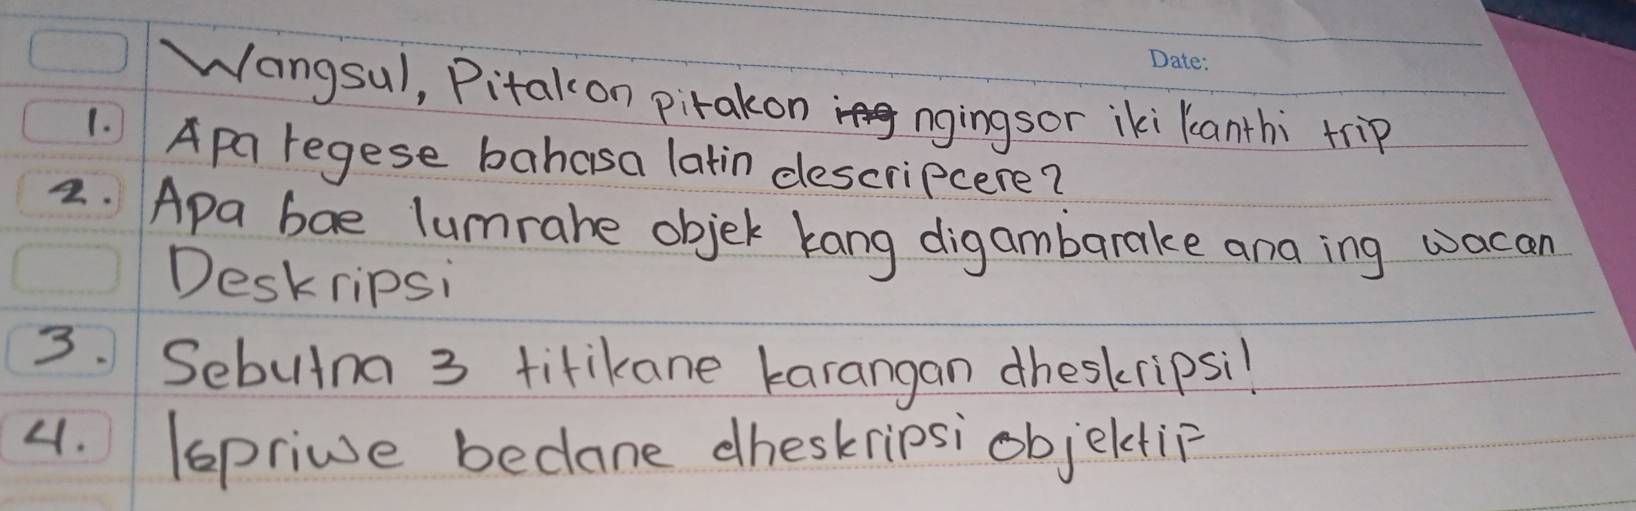 Date:
Wangsul, Pitakon pitakon ing ngingsor iki kanthi trip
1. Apa tegese bahasa latin descripcere?
2. Apa bae lumrahe objek kang digambarake ana ing wacan
Deskripsi
3. Sebutna 3 titikane karangan dheskripsi!
4. kepriwe bedane dheskripsi objektif